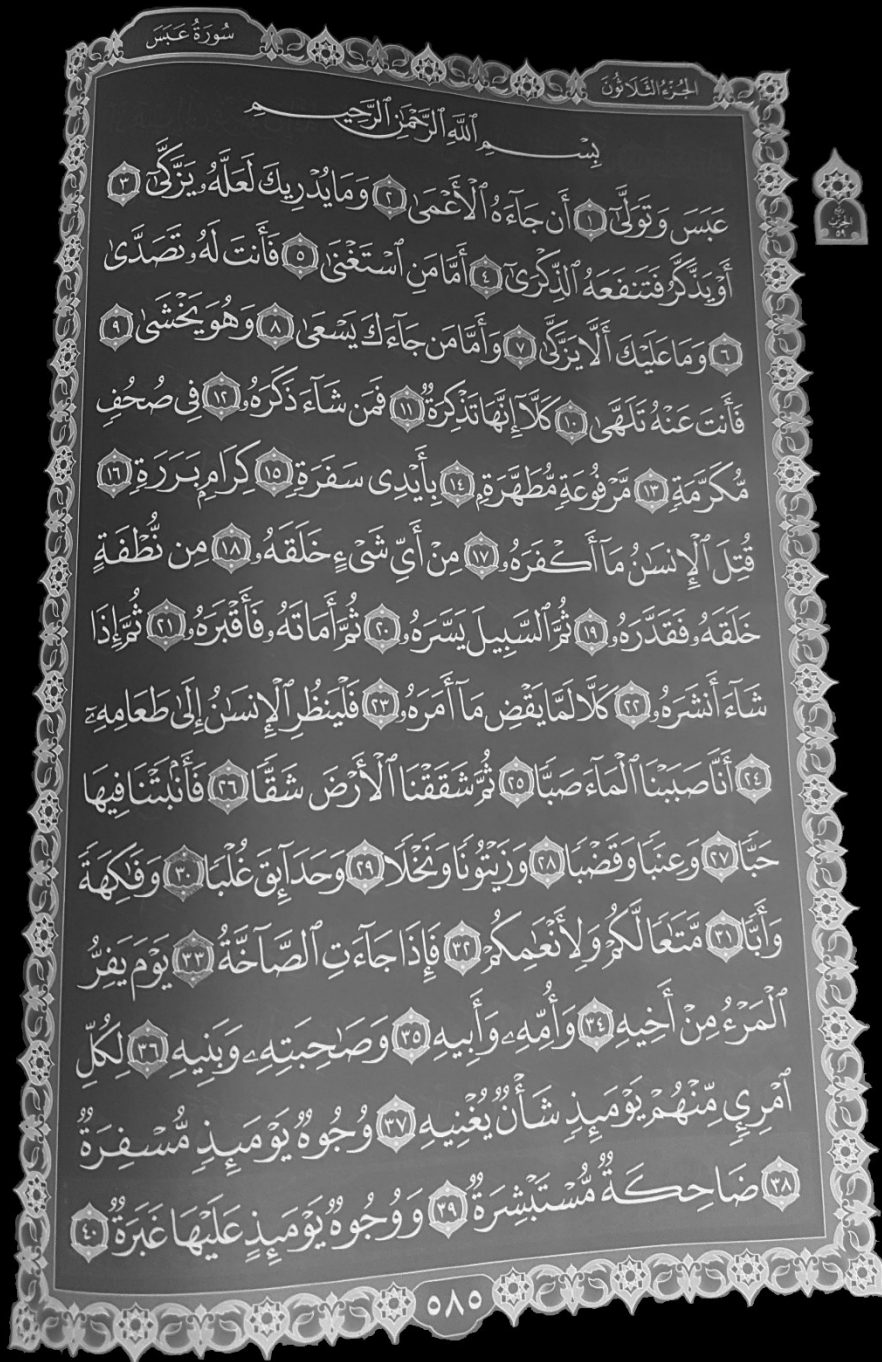 سُورَةُ عَبَسَ
الجُزْءُ الثَّلَاثُونَ
بِسْمِ ٱللَّهِ ٱلرَّحْمَٰنِ ٱلرَّحِيمِ
عَبَسَ وَتَوَلَّىٰٓ ١ أَن جَآءَهُ ٱلْأَعْمَىٰ ٢ وَمَا يُدْرِيكَ لَعَلَّهُۥ يَزَّكَّىٰٓ ٣
أَوْ يَذَّكَّرُ فَتَنفَعَهُ ٱلذِّكْرَىٰٓ ٤ أَمَّا مَنِ ٱسْتَغْنَىٰ ٥ فَأَنتَ لَهُۥ تَصَدَّىٰ
٦ وَمَا عَلَيْكَ أَلَّا يَزَّكَّىٰ ٧ وَأَمَّا مَن جَآءَكَ يَسْعَىٰ ٨ وَهُوَ يَخْشَىٰ ٩
فَأَنتَ عَنْهُ تَلَهَّىٰ ١٠ كَلَّآ إِنَّهَا تَذْكِرَةٌ ١١ فَمَن شَآءَ ذَكَرَهُۥ ١٢ فِى صُحُفٍ
مُّكَرَّمَةٍ ١٣ مَّرْفُوعَةٍ مُّطَهَّرَةٍۭ ١٤ بِأَيْدِى سَفَرَةٍ ١٥ كِرَامٍۭ بَرَرَةٍ ١٦
قُتِلَ ٱلْإِنسَٰنُ مَآ أَكْفَرَهُۥ ١٧ مِنْ أَىِّ شَىْءٍ خَلَقَهُۥ ١٨ مِن نُّطْفَةٍ
خَلَقَهُۥ فَقَدَّرَهُۥ ١٩ ثُمَّ ٱلسَّبِيلَ يَسَّرَهُۥ ٢٠ ثُمَّ أَمَاتَهُۥ فَأَقْبَرَهُۥ ٢١ ثُمَّ إِذَا
شَآءَ أَنشَرَهُۥ ٢٢ كَلَّا لَمَّا يَقْضِ مَآ أَمَرَهُۥ ٢٣ فَلْيَنظُرِ ٱلْإِنسَٰنُ إِلَىٰ طَعَامِهِۦٓ
٢٤ أَنَّا صَبَبْنَا ٱلْمَآءَ صَبًّا ٢٥ ثُمَّ شَقَقْنَا ٱلْأَرْضَ شَقًّا ٢٦ فَأَنۢبَتْنَا فِيهَا
حَبًّا ٢٧ وَعِنَبًا وَقَضْبًا ٢٨ وَزَيْتُونًا وَنَخْلًا ٢٩ وَحَدَآئِقَ غُلْبًا ٣٠ وَفَٰكِهَةً
وَأَبًّا ٣١ مَّتَٰعًا لَّكُمْ وَلِأَنْعَٰمِكُمْ ٣٢ فَإِذَا جَآءَتِ ٱلصَّآخَّةُ ٣٣ يَوْمَ يَفِرُّ
ٱلْمَرْءُ مِنْ أَخِيهِ ٣٤ وَأُمِّهِۦ وَأَبِيهِ ٣٥ وَصَٰحِبَتِهِۦ وَبَنِيهِ ٣٦ لِكُلِّ
ٱمْرِئٍ مِّنْهُمْ يَوْمَئِذٍ شَأْنٌ يُغْنِيهِ ٣٧ وُجُوهٌ يَوْمَئِذٍ مُّسْفِرَةٌ
٣٨ ضَاحِكَةٌ مُّسْتَبْشِرَةٌ ٣٩ وَوُجُوهٌ يَوْمَئِذٍ عَلَيْهَا غَبَرَةٌ ٤٠
٥٨٥
الحزب
٥٩